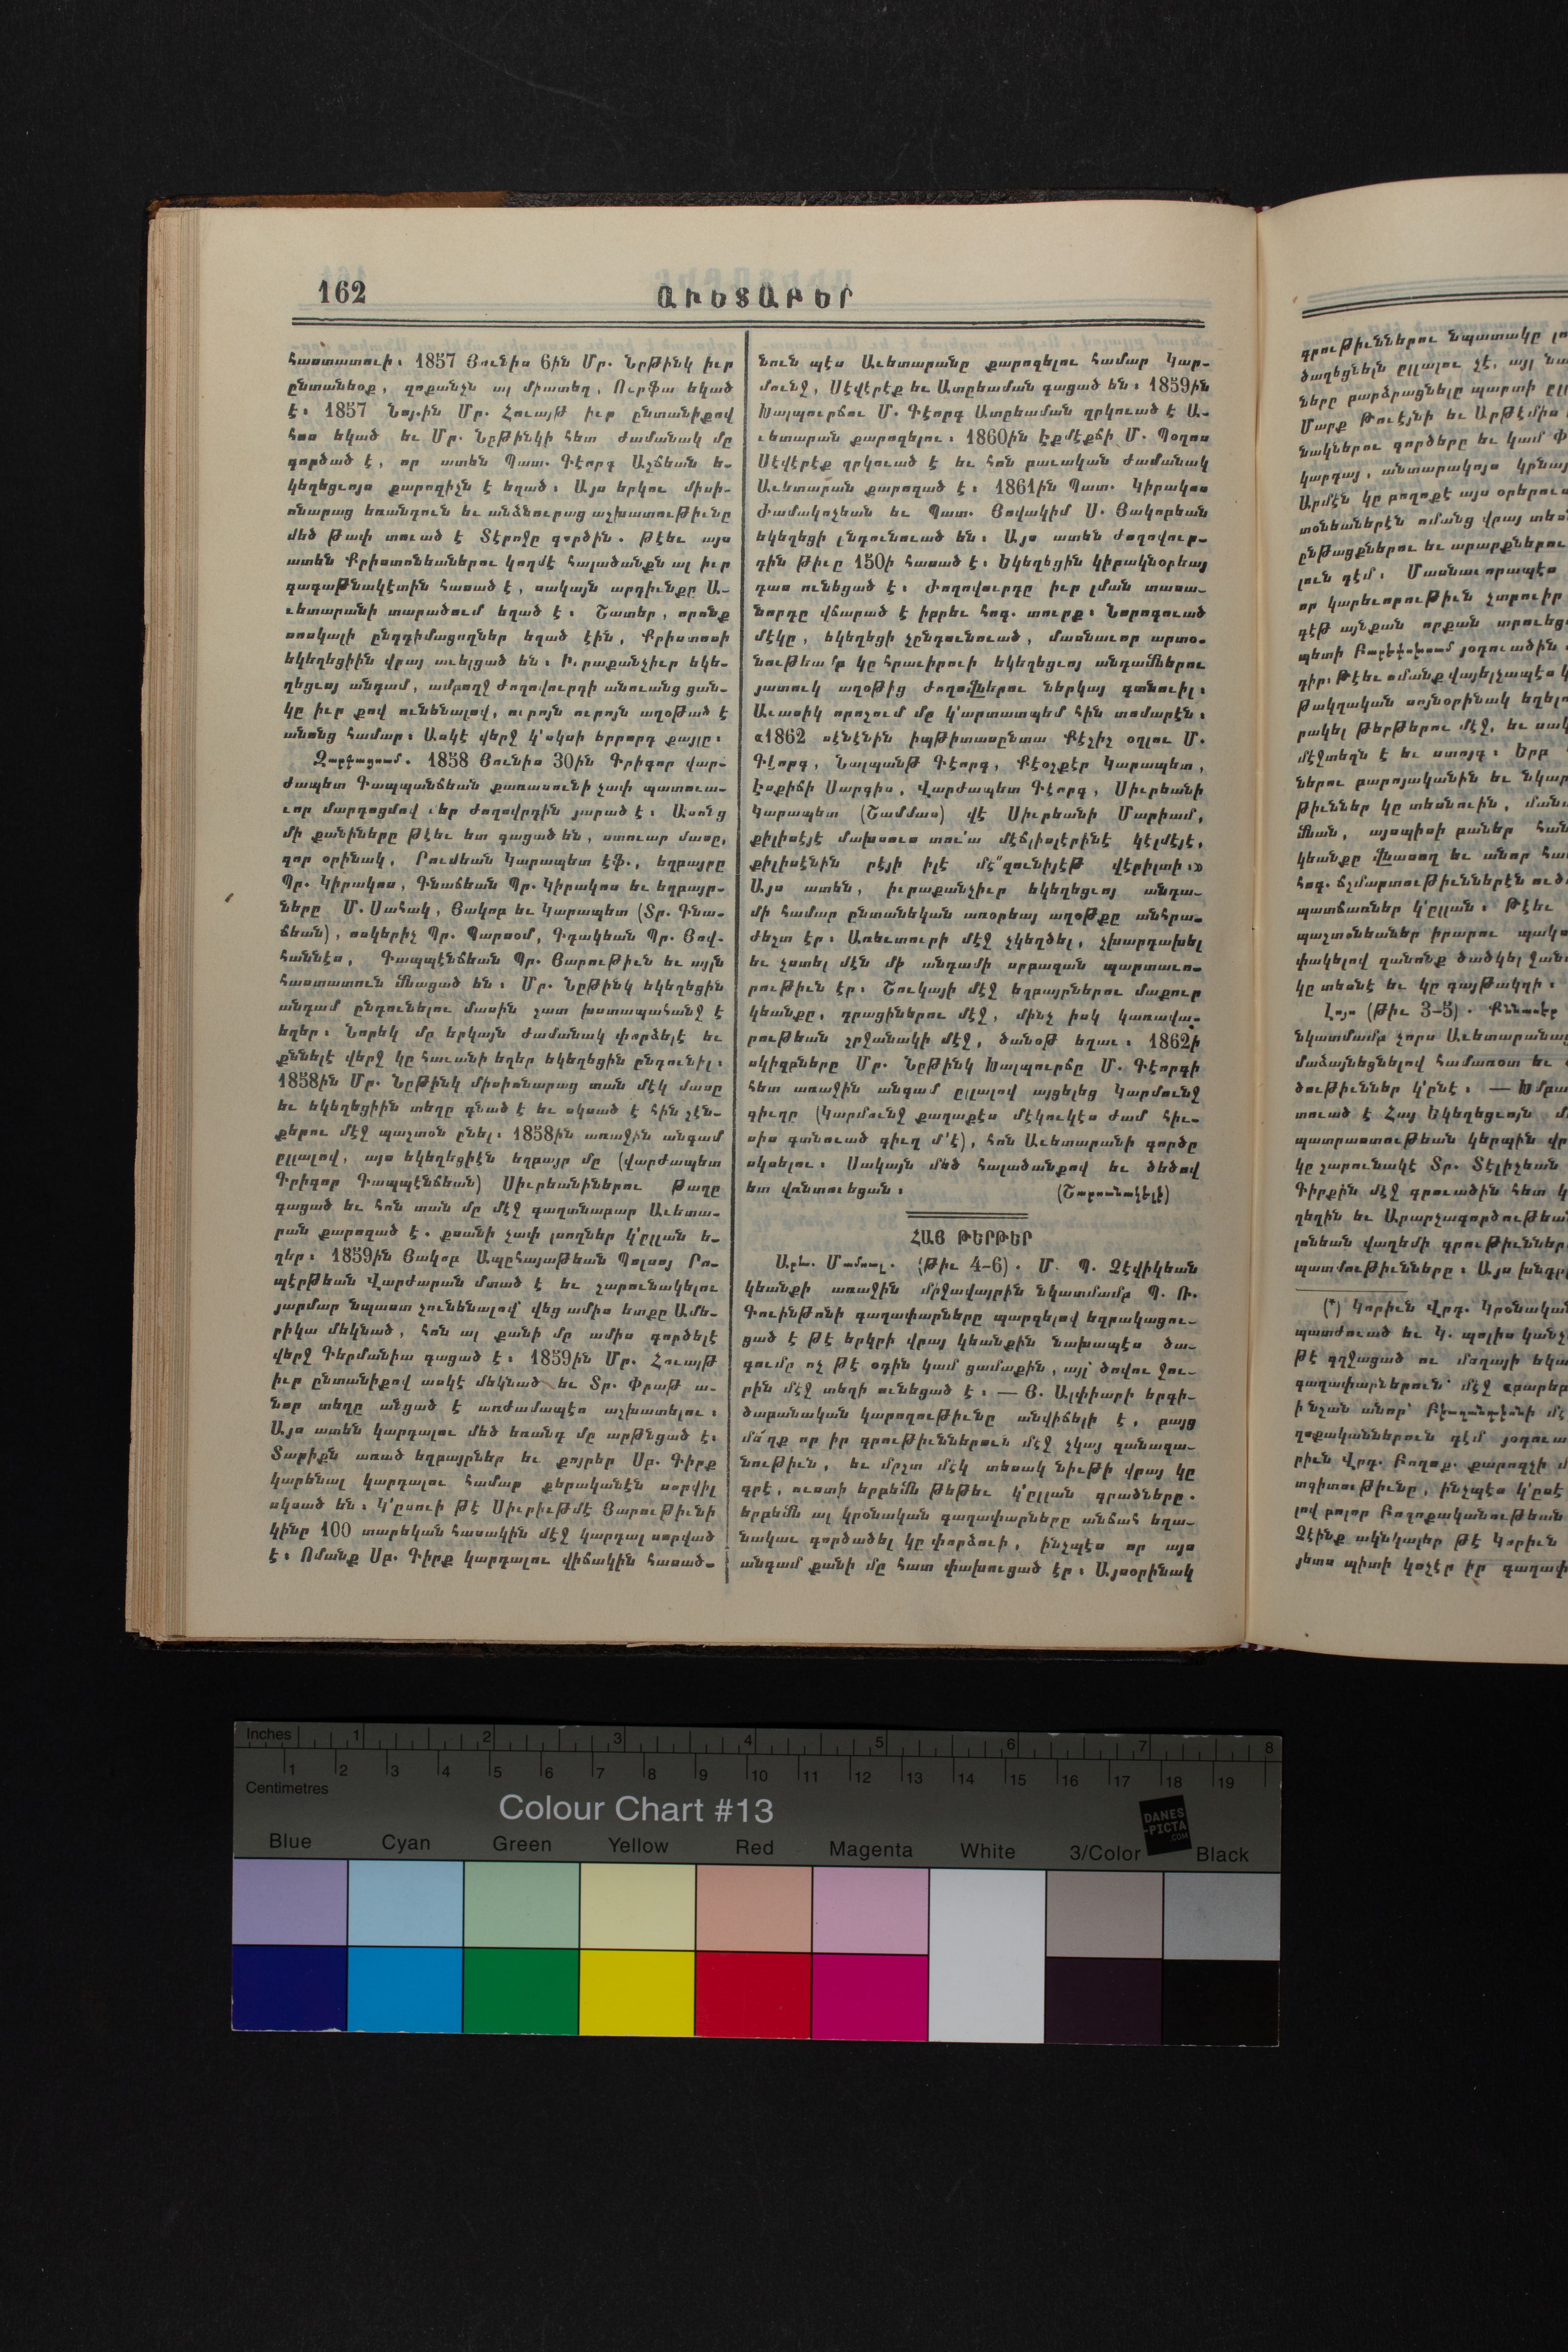 162
ԱՒԵՏԱԲԵՐ
հաստատուի։ 1857 Յունիս 6ին Մր. Նըթինկ իւր
ընտանեօք, զոքանչն ալ միատեղ, Ուրֆա եկած
է։ 1857 Նոյ.ին Մր. Հուայթ իւր ընտանիքով
հոս եկած եւ Մր. Նըթինկի հետ ժամանակ մը
գործած է, որ ատեն Պատ. Գէորգ Աչճեան ե-
կեղեցւոյս քարոզիչն է եղած։ Այս երկու միսի-
ոնարաց եռանդուն եւ անձնուրաց աշխատութիւնը
մեծ թափ տուած է Տէրոջը գործին. թէեւ այս
ատեն Քրիստոնեաներու կողմէ հալածանքն ալ իւր
գագաթնակէտին հասած է, սակայն արդիւնքը Ա-
ւետարանի տարածում եղած է։ Շատեր, որոնք
սոսկալի ընդդիմացողներ եղած էին, Քրիստոսի
եկեղեցիին վրայ աւելցած են։ Իւրաքանչիւր եկե-
ղեցւոյ անդամ, ամբողջ ժողովուրդի անուանց ցան-
կը իւր քով ունենալով, ուրոյն ուրոյն աղօթած է
անոնց համար։ Ասկէ վերջ կ'սկսի երրորդ քայլը։
Զարգացում. 1858 Յունիս 30ին Գրիգոր վար-
ժապետ Գապպանճեան քառասունի չափ պատուա-
ւոր մարդոցմով մեր ժողովրդին յարած է։ Ասոնց
մի քանիները թէեւ ետ գացած են, ստուար մասը,
զոր օրինակ, Րումեան Կարապետ էֆ., եղբայրը
Պր. Կիրակոս, Գնաճեան Պր. Կիրակոս եւ եղբայր-
ները Մ. Սահակ, Յակոբ եւ Կարապետ (Տր. Գնա-
ճեան), ոսկերիչ Պր. Պարսօմ, Գդակեան Պր. Յով-
հաննէս, Գապպէնճեան Պր. Յարութիւն եւ այլն
հաստատուն մնացած են։ Մր. Նըթինկ եկեղեցին
անդամ ընդունելու մասին շատ խստապահանջ է
եղեր։ Նորեկ մը երկայն ժամանակ փորձելէ եւ
քննելէ վերջ կը հաւանի եղեր եկեղեցին ընդունիլ։
1858ին Մր. Նըթինկ միսիոնարաց տան մէկ մասը
եւ եկեղեցիին տեղը գնած է եւ սկսած է հին շէն-
քերու մէջ պաշտօն ընել։ 1858ին առաջին անգամ
ըլլալով, այս եկեղեցիէն եղբայր մը (վարժապետ
Գրիգոր Գապպէնճեան) Սիւրեանիներու թաղը
գացած եւ հոն տան մը մէջ գաղտնաբար Աւետա-
րան քարոզած է. քսանի չափ լսողներ կ'ըլլան ե-
ղեր։ 1859ին Յակոբ Ապըհայաթեան Պոլսոյ Րո-
պէրթեան Վարժարան մտած է եւ շարունակելու
յարմար նպաստ չունենալով՝ վեց ամիս ետքը Ամե-
րիկա մեկնած, հոն ալ քանի մը ամիս գործելէ
վերջ Գերմանիա գացած է։ 1859ին Մր. Հուայթ
իւր ընտանիքով ասկէ մեկնած եւ Տր. Փրաթ ա-
նոր տեղը անցած է առժամապէս աշխատելու։
Այս ատեն կարդալու մեծ եռանդ մը արթնցած է։
Տարիքն առած եղբայրներ եւ քոյրեր Սբ. Գիրք
կարենալ կարդալու համար քերականէն սորվիլ
սկսած են։ Կ'ըսուի թէ Սիւրիւթմէ Յարութիւնի
կինը 100 տարեկան հասակին մէջ կարդալ սորված
է։ Ոմանք Սբ. Գիրք կարդալու վիճակին հասած-
նուն պէս Աւետարանը քարոզելու համար Կար-
մունջ, Սէվէրէք եւ Ատըեաման գացած են։ 1859ին
Խալպուրճու Մ. Գէորգ Ատըեաման ղրկուած է Ա-
ւետարան քարոզելու։ 1860ին Էքմէքճի Մ. Պօղոս
Սէվէրէք ղրկուած է եւ հոն բաւական ժամանակ
Աւետարան քարոզած է։ 1861ին Պատ. Կիրակոս
Ժամակոչեան եւ Պատ. Յովակիմ Ս. Յակոբեան
եկեղեցի ընդունուած են։ Այս ատեն ժողովուր-
դին թիւը 150ի հասած է։ Եկեղեցին կիրակնօրեայ
դաս ունեցած է։ Ժողովուրդը իւր լման տասա-
նորդը վճարած է իբրեւ հոգ. տուրք։ Նորոգուած
մէկը, եկեղեցի չընդունուած, մասնաւոր արտօ-
նութեամբ կը հրաւիրուի եկեղեցւոյ անդամներու
յատուկ աղօթից ժողովներու ներկայ գտնուիլ։
Աւասիկ որոշում մը կ'արտատպեմ հին տոմարէն։
«1862 սէնէնին իպթիտասընտա Քէչիչ օղլու Մ.
Գէորգ, Նալպանթ Գէորգ, Քէօշքէր Կարապետ,
Էսքիճի Սարգիս, Վարժապետ Գէորգ, Սիւրեանի
Կարապետ (Շամմաս) վէ Սիւրեանի Մարիամ,
քիլիսէյէ մախսուս տու՛ա մէճլիսլէրինէ կէլմէյէ,
քիլիսէնին րէյի իլէ մէ՛զունիյէթ վէրիլտի։»
Այս ատեն, իւրաքանչիւր եկեղեցւոյ անդա-
մի համար ընտանեկան առօրեայ աղօթքը անհրա-
ժեշտ էր։ Առեւտուրի մէջ չկեղծել, չխարդախել
եւ չստել մէն մի անդամի սրբազան պարտաւո-
րութիւն էր։ Շուկայի մէջ եղբայրներու մաքուր
կեանքը, դրացիներու մէջ, մինչ իսկ կառավա-
րութեան շրջանակի մէջ, ծանօթ եղաւ։ 1862ի
սկիզբները Մր. Նըթինկ Խալպուրճը Մ. Գէորգի
հետ առաջին անգամ ըլլալով այցելեց Կարմունջ
գիւղը (Կարմունջ քաղաքէս մէկուկէս ժամ հիւ-
սիս գտնուած գիւղ մ'է), հոն Աւետարանի գործը
սկսելու։ Սակայն մեծ հալածանքով եւ ծեծով
ետ վռնտուեցան։ (Շարունակելի)
ՀԱՅ ԹԵՐԹԵՐ
Արև. Մամուլ. (Թիւ 4–6). Մ. Պ. Չէվիկեան
կեանքի առաջին միջավայրին նկատմամբ Պ. Ռ.
Գուինթոնի գաղափարները պարզելով եզրակացու-
ցած է թէ երկրի վրայ կեանքին նախապէս ծա-
գումը ոչ թէ օդին կամ ցամաքին, այլ ծովու ջու-
րին մէջ տեղի ունեցած է։ — Յ. Ալփիարի երգի-
ծաբանական կարողութիւնը անվիճելի է, բայց
մա՛ղք որ իր գրութիւններուն մէջ չկայ զանազա-
նութիւն, եւ մըշտ մէկ տեսակ նիւթի վրայ կը
գրէ, ուստի երբեմն թեթեւ կ'ըլլան գրածները.
երբեմն ալ կրօնական գաղափարները անճահ եղա-
նակաւ գործածել կը փորձուի, ինչպէս որ այս
անգամ քանի մը հատ փախուցած էր։ Այսօրինակ
գրութիւններու նպատակը
ծաղեցնելն ըլլալու չէ, այլ
ները բարձրացնելը պարտի
Մարք Թուէյնի եւ Արթէմիս
նակներու գործերը եւ կամ
կարդայ, անտարակոյս
Արմէն կը բողոքէ այս օրերուս
տօնեաներէն ոմանց վրայ
ընթացքներու եւ արարքներու
լուն դէմ։ Մասնաւորապէս
որ կարեւորութիւն չտրուիր
դէթ այնքան որքան
պետի յօդուածին
դիր։ Թէեւ ոմանք վայելչապէս
թակղական սոյնօրինակ
րակել թերթերու մէջ, եւ
մէջտեղն է եւ ստոյգ։ Երբ
ներու բարոյականին եւ
թիւններ կը տեսնուին,
մնան, այսպիսի բաներ
կեանքը վնասող եւ անոր
հոգ. ճշմարտութիւններէն
պատճառներ կ'ըլլան։ Թէեւ
պաշտօնեաներ իրարու
փակելով զանոնք ծածկել
կը տեսնէ եւ կը գայթակղի։
Լոյս (Թիւ 3–5).
նկատմամբ չորս
մաձայնեցնելով համառօտ եւ
ծութիւններ կ'ընէ։ —
տուած է Հայ Եկեղեցւոյն
պատրաստութեան կերպին
կը շարունակէ Տր. Տէլիչեան
Գիրքին մէջ գրուածին հետ
ղեղին եւ Արարչագործութեան
լոնեան վաղեմի
պատմութիւնները։ Այս
(*) Կորիւն Վրդ.
պատժուած եւ Կ. պոլիս
թէ զղջացած ու մեղայի
գաղափարներուն՝ մէջ
ինչան անոր՝
ղոքականներուն դէմ
րիւն Վրդ. Բողոք. քարոզչի
տգիտութիւնը, ինչպէս
լով բոլոր Բողոքականութեան
Չէինք ակնկալեր թէ Կորիւն
յետս պիտի կոչէր իր
Inches 1 2 3 4 5 6 7 8
1 2 3 4 5 6 7 8 9 10 11 12 13 14 15 16 17 18 19
Centimetres
Colour Chart #13
DANES
-PICTA
.COM
Blue Cyan Green Yellow Red Magenta White 3/Color Black